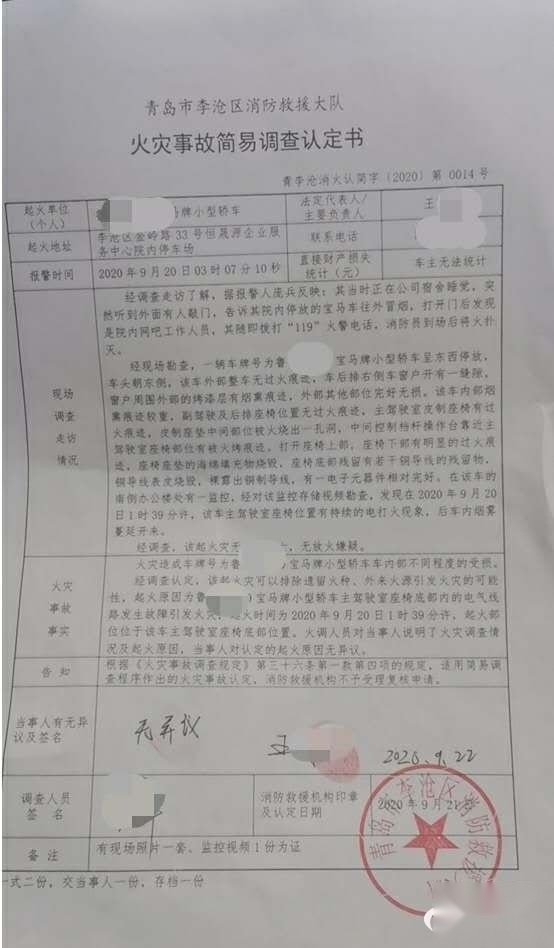 青岛市李沧区消防救援大队
火灾事故简易调查认定书
青李沧消火认简字〔2020〕第 0014 号
起火单位
(个人)
马牌小型轿车
法定代表人/
主要负责人
王
起火地址
李沧区金岭路 33 号恒晟源企业服
务中心院内停车场
联系电话
报警时间
2020 年 9 月 20 日 03 时 07 分 10 秒
直接财产损失
统计(元)
车主无法统计
现场
调查
走访
情况
经调查走访了解，据报警人庞兵反映：其当时正在公司宿舍睡觉，突
然听到外面有人敲门，告诉其院内停放的宝马车往外冒烟，打开门后发现
是院内网吧工作人员，其随即拨打“119”火警电话，消防员到场后将火扑
灭。
经现场勘查，一辆车牌号为鲁 宝马牌小型轿车呈东西停放，
车头朝东侧，该车外部整车无过火痕迹，车后排右侧车窗户开有一缝隙，
窗户周围外部的烤漆层有烟熏痕迹，外部其他部位完好无损。该车内部烟
熏痕迹较重，副驾驶及后排座椅位置无过火痕迹，主驾驶室皮制座椅有过
火痕迹，皮制座垫中间部位被火烧出一孔洞，中间控制档杆操作台靠近主
驾驶室座椅部位有被火烤痕迹，打开座椅上部，座椅下部有明显的过火痕
迹，座椅座垫的海绵填充物烧毁，座椅底部残留有若干铜导线的残留物，
铜导线表皮烧毁，裸露出铜制导线，有一电子元器件相对完好。在该车的
南侧办公楼处有一监控，经对该监控存储视频勘查，发现在 2020 年 9 月 20
日 1 时 39 分许，该车主驾驶室座椅位置有持续的电打火现象，后车内烟雾
蔓延开来。
经调查，该起火灾无 ，无放火嫌疑。
火灾
事故
事实
火灾造成车牌号为鲁 宝马牌小型轿车车内部不同程度的受损。
经调查认定，该起火灾可以排除遗留火种、外来火源引发火灾的可能
性，起火原因为鲁 0 宝马牌小型轿车主驾驶室座椅底部内的电气线
路发生故障引发火灾，起火时间为 2020 年 9 月 20 日 1 时 39 分许，起火部
位位于该车主驾驶室座椅底部位置。火调人员对当事人说明了火灾调查情
况及起火原因，当事人对认定的起火原因无异议。
告 知
根据《火灾事故调查规定》第三十六条第一款第四项的规定，适用简易调
查程序作出的火灾事故认定，消防救援机构不予受理复核申请。
当事人有无异
议及签名
无异议
王
2020.9.22
调查人员
签 名
消防救援机构印章
及认定日期
2020 年 9 月 21 日
青岛市李沧区消防救援大队
备 注
有现场照片一套、监控视频 1 份为证
一式二份，交当事人一份，存档一份